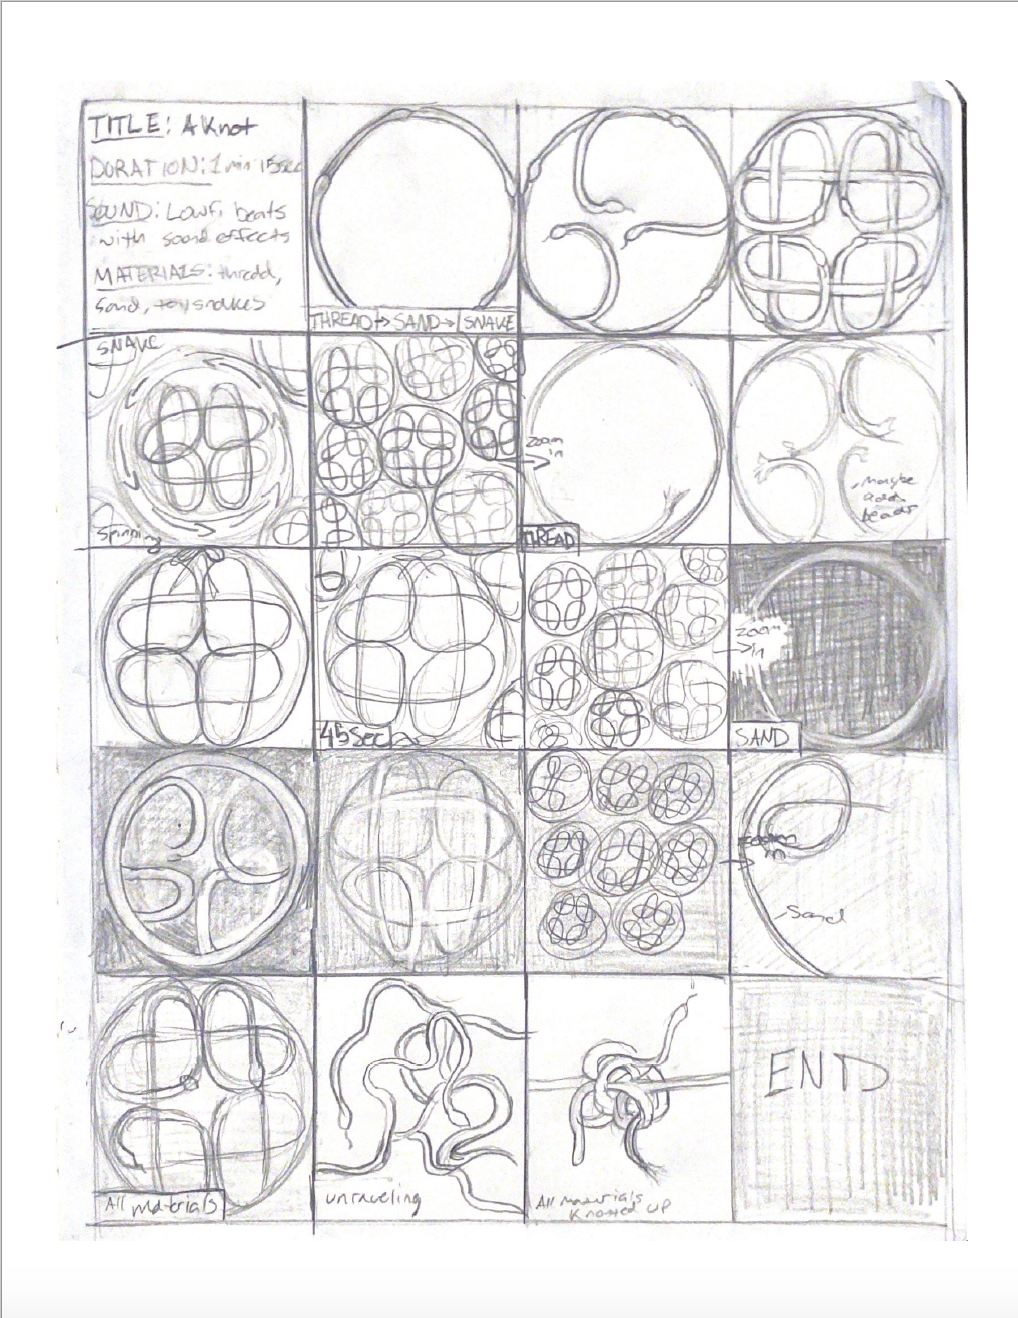 TITLE: A Knot
DURATION: 1 min 15sec
SOUND: Lowfi beats
with sound effects
MATERIALS: thredd,
Sand, toy snakes
THREAD → SAND → SNAKE
SNAKE
Spinning
zoom
in
THREAD
maybe
add
beads
45sec
zoom
in
SAND
in
Sand
All materials
unraveling
All materials
Knotted UP
END